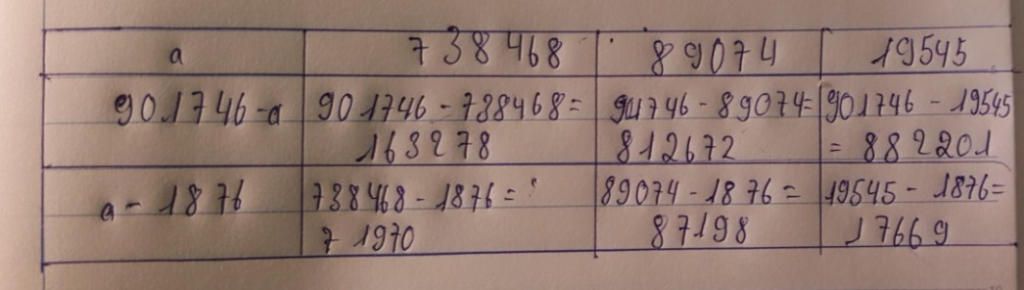 a 738468 89074 19545
901746-a 901746-738468= 901746-89074= 901746-19545
163278 812672 = 882201
a-1876 738468-1876= 89074-1876= 19545-1876=
71970 87198 17669